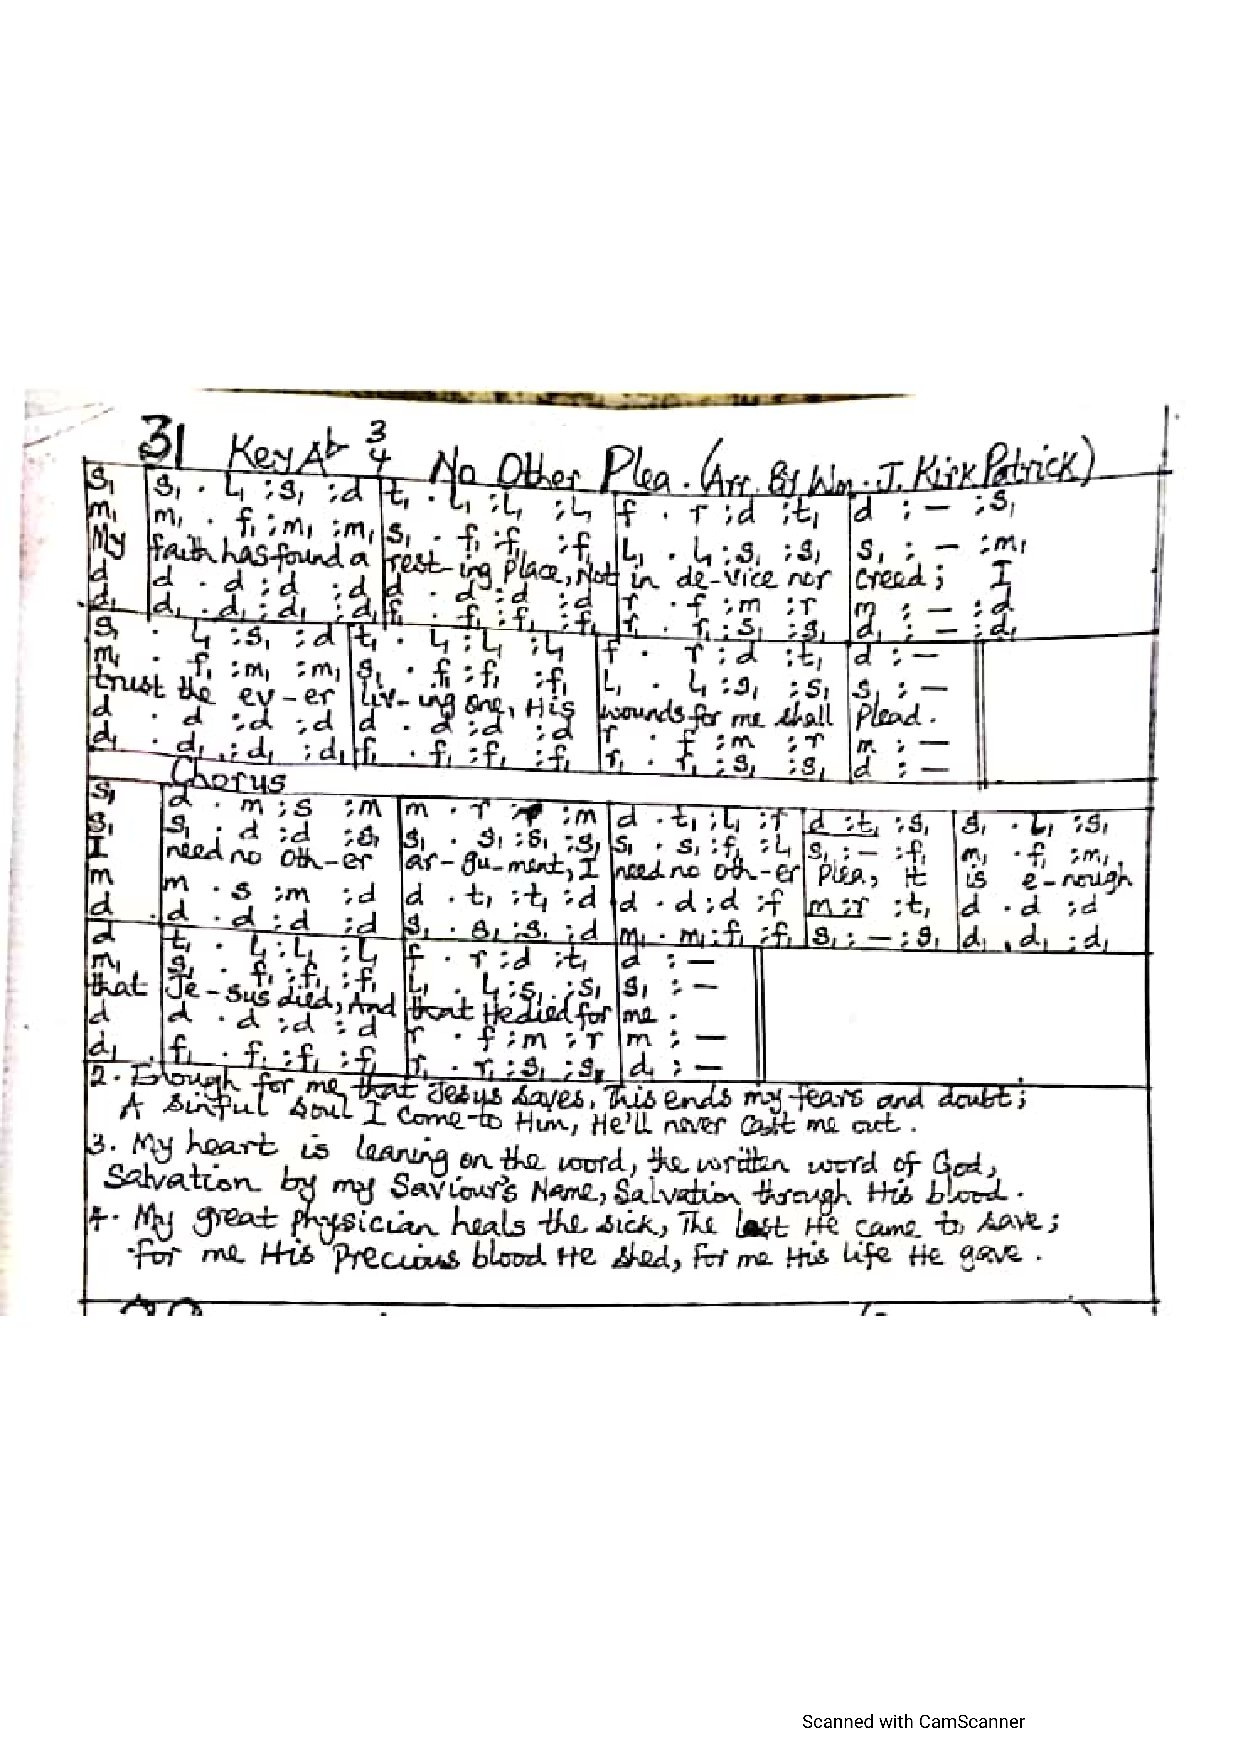 31 Key Ab 3/4 No Other Plea. (Arr. By Wm. J. KirkPatrick)
s, | s, . l, : s, : d | t, . l, : l, : l, | f . r : d : t, | d : — : s,
m, | m, . f, : m, : m, | s, . f, : f, : f, | l, . l, : s, : s, | s, : — : m,
My | faith has found a | rest-ing place, Not | in de-vice nor | creed; I
d | d . d : d : d | d . d : d : d | r . f : m : r | m : — : d
d, | d, . d, : d, : d, | f, . f, : f, : f, | r, . r, : s, : s, | d, : — : d,
s, . l, : s, : d | t, . l, : l, : l, | f . r : d : t, | d : —
m, . f, : m, : m, | s, . f, : f, : f, | l, . l, : s, : s, | s, : —
trust the ev-er | liv-ing one, His | wounds for me shall | Plead.
d . d : d : d | d . d : d : d | r . f : m : r | m : —
d, . d, : d, : d, | f, . f, : f, : f, | r, . r, : s, : s, | d : —
Chorus
s, | d . m : s : m | m . r : : m | d . t, : l, : f | d : t, : s, | s, . l, : s,
s, | s, . d : d : s, | s, . s, : s, : s, | s, . s, : f, : l, | s, : — : f, | m, . f, : m,
I | need no oth-er | ar-gu-ment, I | need no oth-er | Plea, it | is e-nough
m | m . s : m : d | d . t, : t, : d | d . d : d : f | m : r : t, | d . d : d
d | d . d : d : d | s, . s, : s, : d | m, . m, : f, : f, | s, : — : s, | d, . d, : d,
d | t, . l, : l, : l, | f . r : d : t, | d : —
m, | s, . f, : f, : f, | l, . l, : s, : s, | s, : —
that | Je-sus died, And | that He died for | me.
d | d . d : d : d | r . f : m : r | m : —
d, | f, . f, : f, : f, | r, . r, : s, : s, | d, : —
2. Enough for me that Jesus saves, This ends my fears and doubt;
A sinful soul I come to Him, He'll never cast me out.
3. My heart is leaning on the word, the written word of God,
Salvation by my Saviour's Name, Salvation through His blood.
4. My great physician heals the sick, The lost He came to save;
for me His Precious blood He shed, for me His life He gave.
Scanned with CamScanner